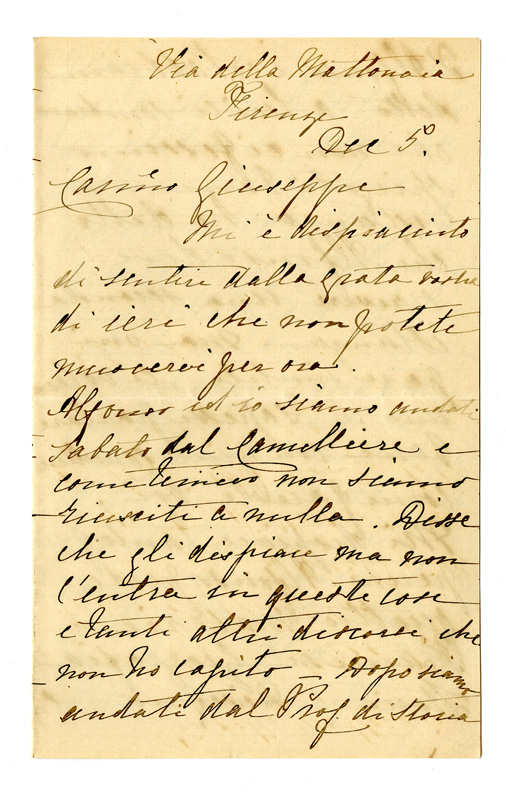 Via della Mattonaia
Firenze
Dec 5º.
Carino Giuseppe
Mi è dispiaciuto
di sentire dalla grata vostra
di ieri che non potete
muovervi per ora.
Alfonso ed io siamo andati
Sabato dal Camelliere e
come temevo non siamo
riusciti a nulla. Disse
che gli dispiace ma non
c'entra in queste cose
e tanti altri discorsi che
non ho capito – Dopo siamo
andati dal Prof. di Storia